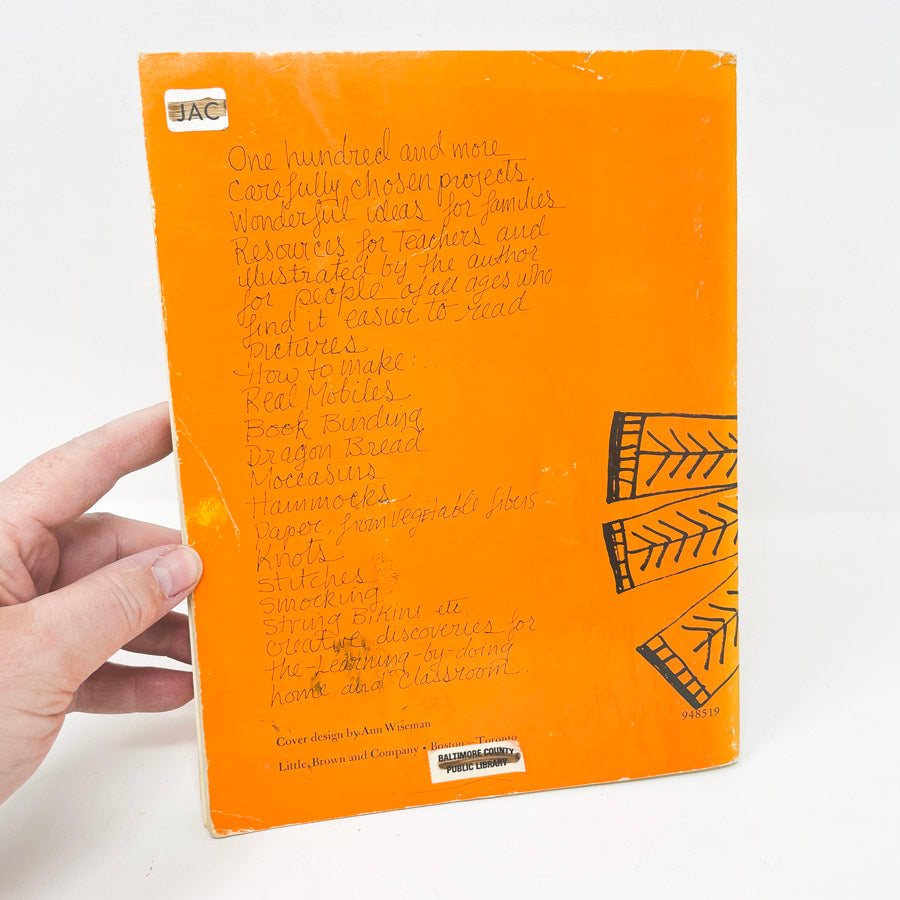 JAC
One hundred and more
carefully chosen projects.
Wonderful ideas for families
Resources for Teachers and
illustrated by the author
for people of all ages who
find it easier to read
pictures
How to make: ..........
Real Mobiles
Book Binding
Dragon Bread
Moccasins
Hammocks
Paper from vegetable fibers
Knots
Stitches
Smocking
String Bikini etc.......
creative discoveries for
the-Learning-by-doing
home and Classroom...
948519
Cover design by Ann Wiseman
Little, Brown and Company • Boston – Toronto
BALTIMORE COUNTY
PUBLIC LIBRARY